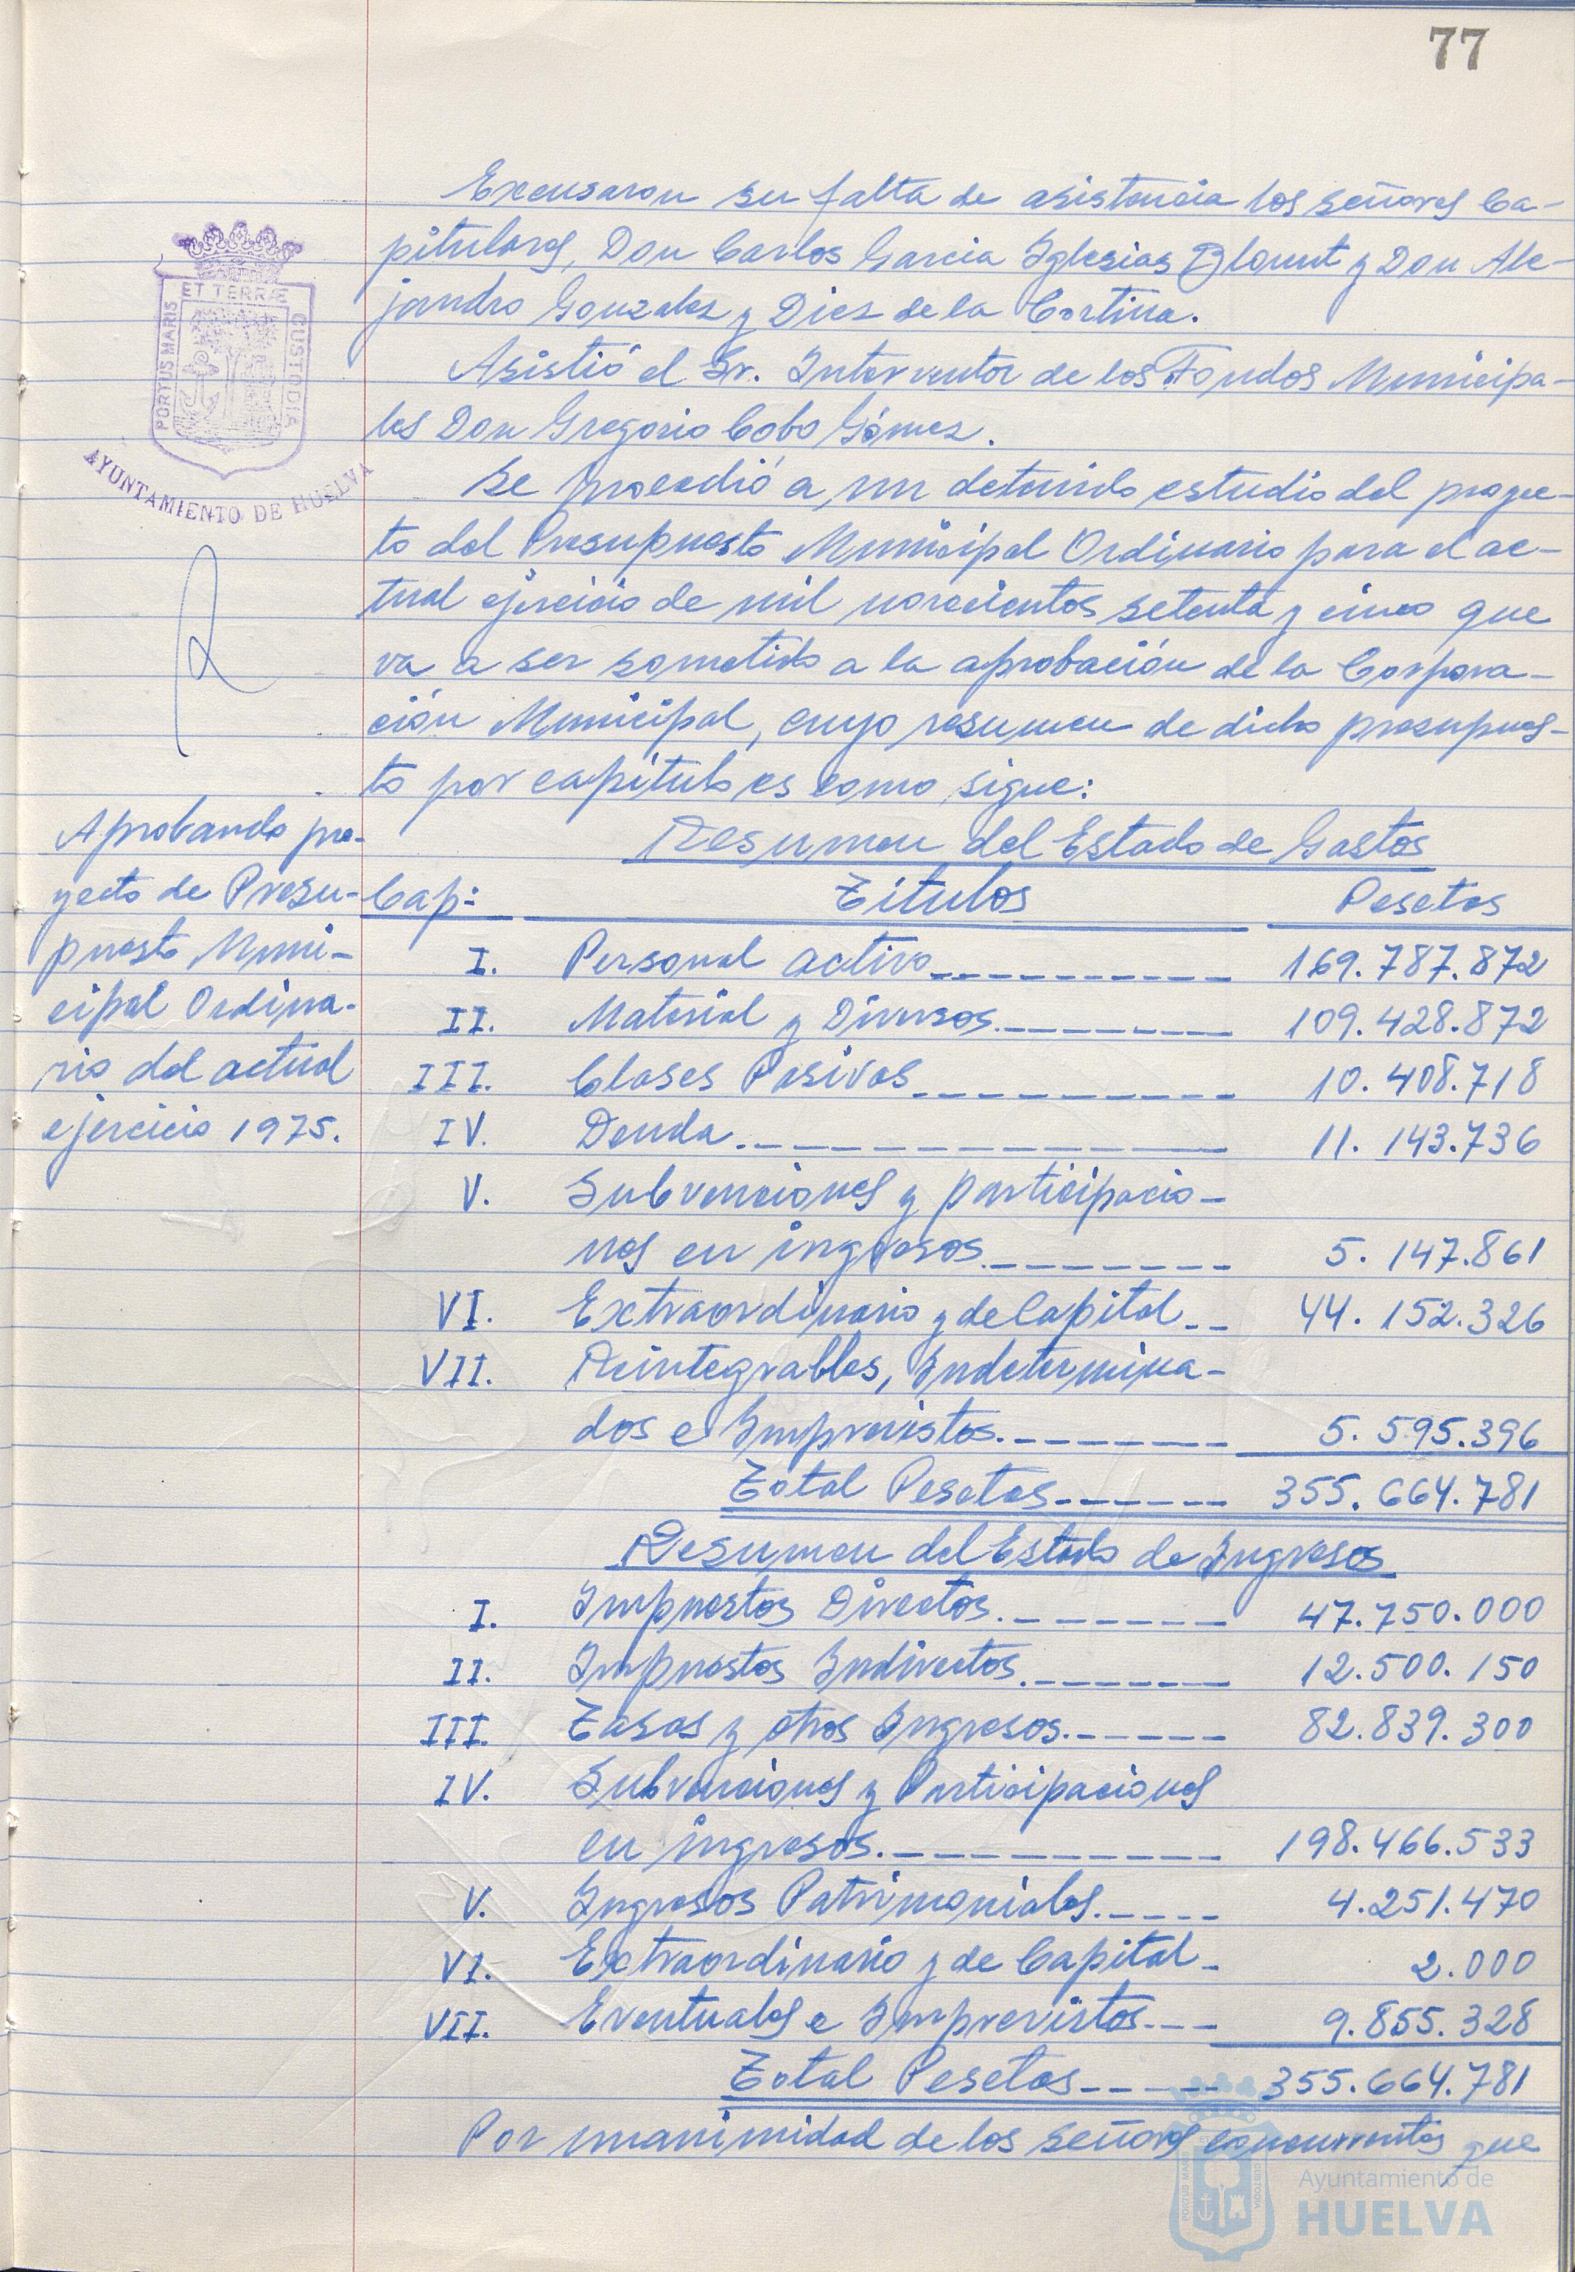 77
Excusaron su falta de asistencia los señores Ca-
pitulares, Don Carlos Garcia Iglesias Blount y Don Ale-
jandro Gonzalez y Diez de la Cortina.
Asistió el Sr. Interventor de los Fondos Municipa-
les Don Gregorio Cobo Gómez.
Se procedió a un detenido estudio del proyec-
to del Presupuesto Municipal Ordinario para el ac-
tual ejercicio de mil novecientos setenta y cinco que
va a ser sometido a la aprobación de la Corpora-
ción Municipal, cuyo resumen de dicho presupues-
to por capitulo es como sigue:
ET TERRAE
PORTUS MARIS
CUSTODIA
AYUNTAMIENTO DE HUELVA
Aprobando pro-
yecto de Presu-
puesto Muni-
cipal Ordina-
rio del actual
ejercicio 1975.
Resumen del Estado de Gastos
Cap: Titulos Pesetas
I. Personal activo 169.787.872
II. Material y Diversos 109.428.872
III. Clases Pasivas 10.408.718
IV. Deuda 11.143.736
V. Subvenciones y participacio-
nes en ingresos 5.147.861
VI. Extraordinario y de Capital 44.152.326
VII. Reintegrables, Indetermina-
dos e Imprevistos 5.595.396
Total Pesetas 355.664.781
Resumen del Estado de Ingresos
I. Impuestos Directos 47.750.000
II. Impuestos Indirectos 12.500.150
III. Tasas y otros Ingresos 82.839.300
IV. Subvenciones y Participaciones
en ingresos 198.466.533
V. Ingresos Patrimoniales 4.251.470
VI. Extraordinario y de Capital 2.000
VII. Eventuales e Imprevistos 9.855.328
Total Pesetas 355.664.781
Por unanimidad de los señores concurrentes que
Ayuntamiento de
HUELVA